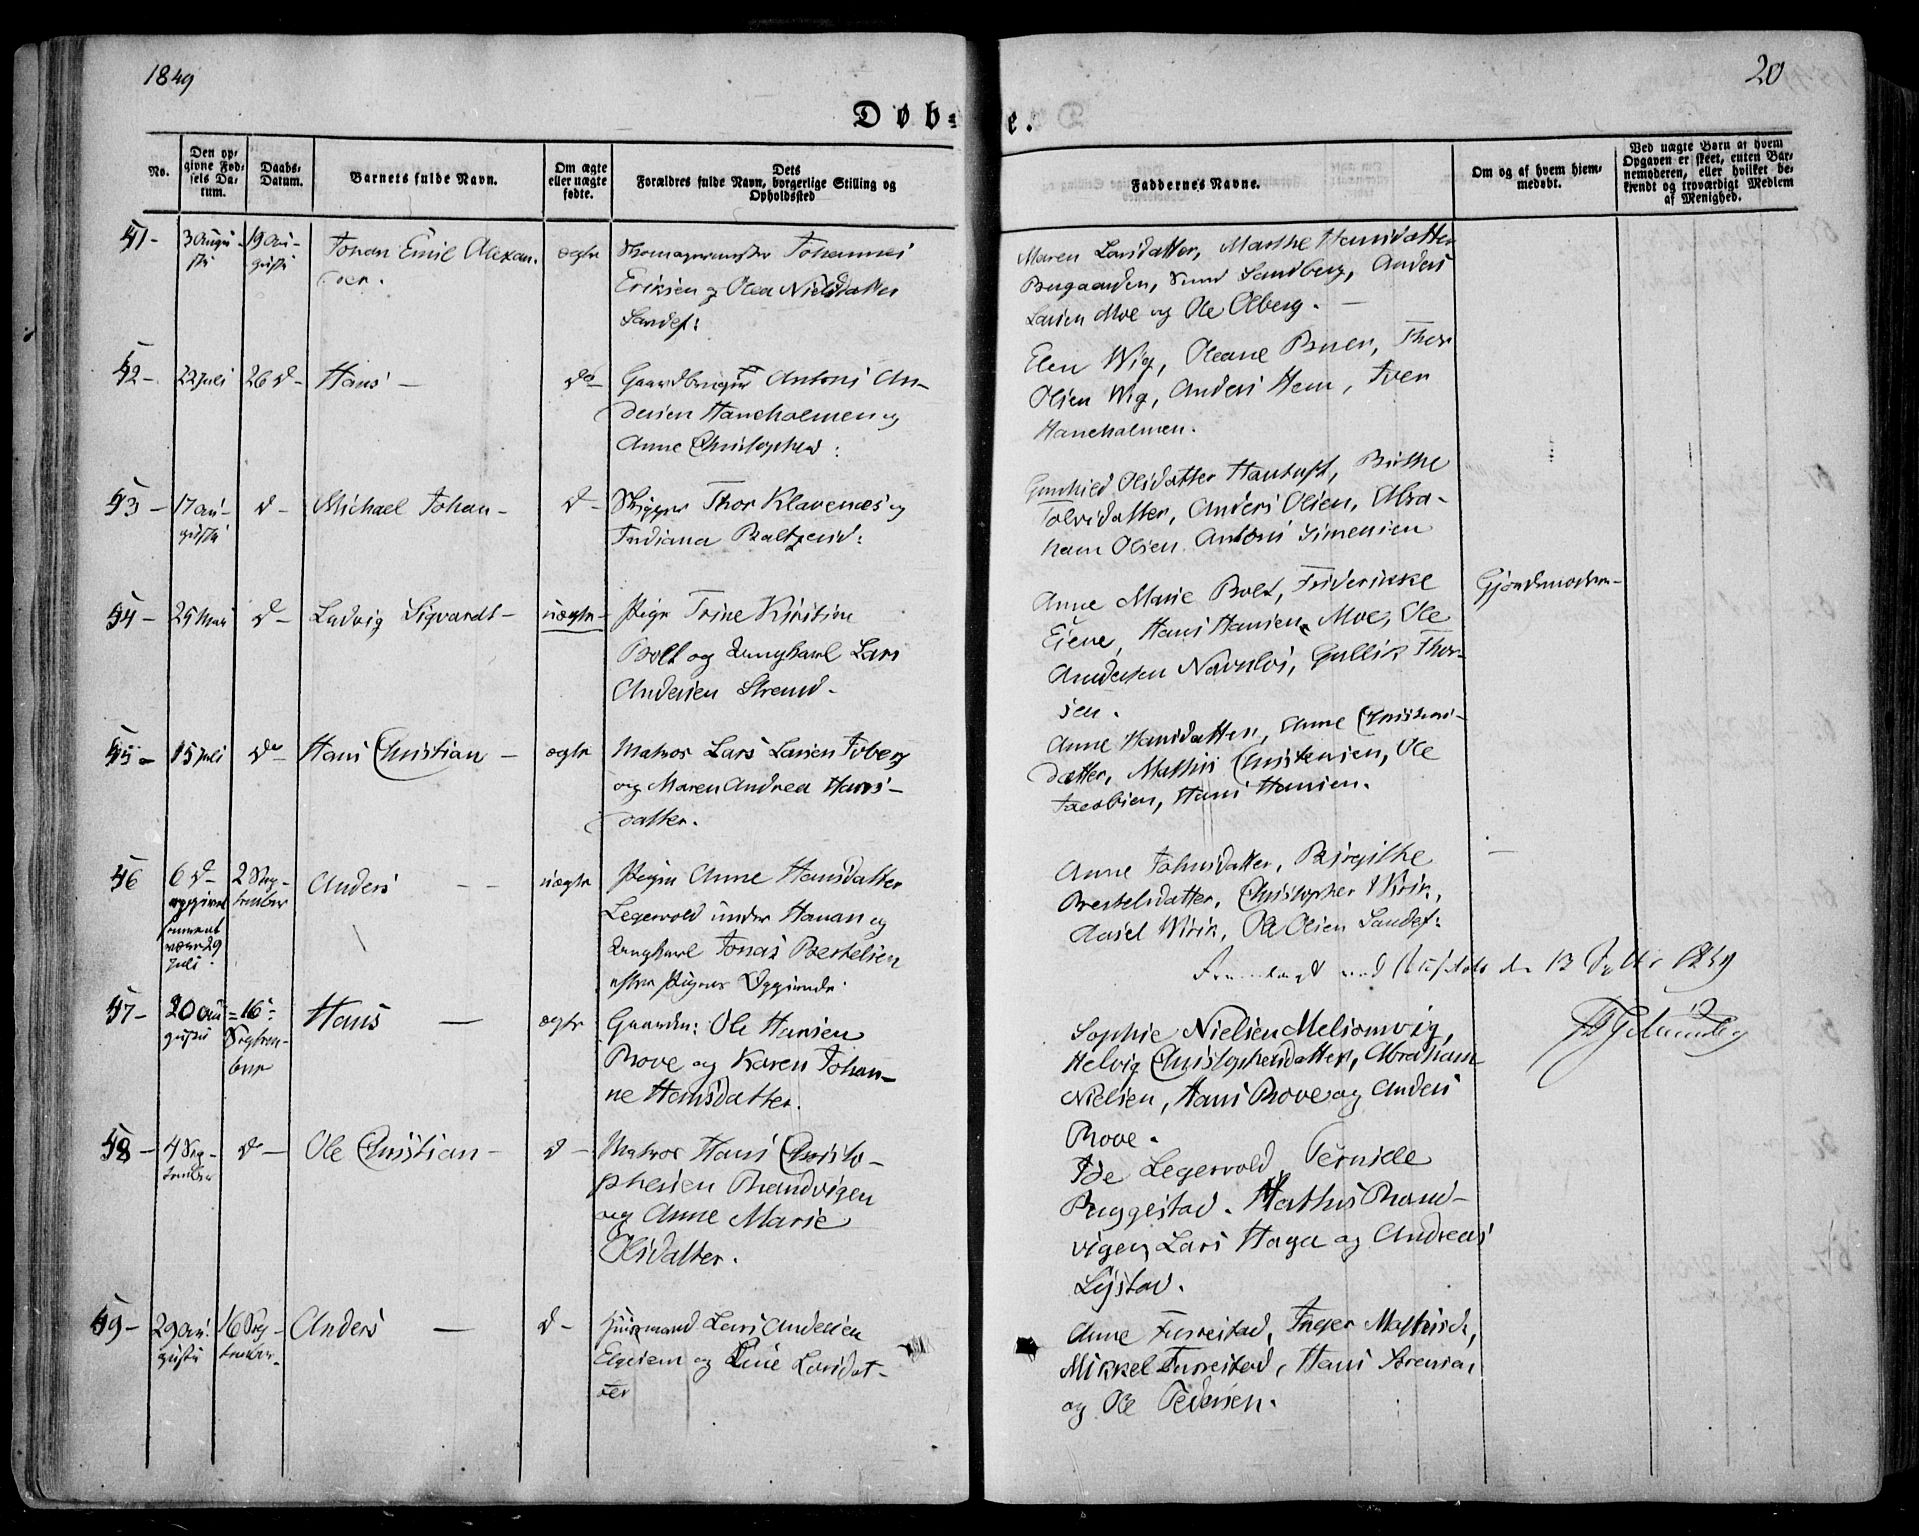 1849
20
Døb-e.
No.
Den opgivne Fødsels Datum.
Daabs-Datum.
Barnets fulde Navn.
Om ægte eller uægte fødte.
Dets Forældres fulde Navn, borgerlige Stilling og Opholdssted
Faddernes Navne.
Om og af hvem hjemmedøbt.
Ved uægte Børn af hvem Opgaven er skeet, enten Barnemoderen, eller hvilket bekjendt og troværdigt Medlem af Menighed.
51-
3 Augu-
sti
19 Au-
gusti
Johan Emil Alexan-
der.
ægte
Johannes
Eriksen og Olea Nielsdatter
Sandef:
Maren Larsdatter, Marthe Hansdatter
Sandberg, Anders
Larsen Moe og Ole Olberg.
52-
22 Juli
26 d-
Hans -
do-
Gaardbruger Antoni An-
dersen Haneholmen og
Anne Christophersd:
Elen Wig, Oleane Buer, Thor
Olsen Wig, Anders Hem, Iver
Haneholmen.
53-
17 Au-
gusti
d-
Michael Johan-
d-
Skipper Thor Klavenæs og
Indiana Baltzersd:
Gunhild Olsdatter Hantuft, Birthe
Tolvsdatter, Anders Olsen, Abra-
ham Olsen Antoni Simensen
54-
25 Mai
d-
Ludvig Sigvardt-
uægte-
Pige Trine Kirstine
Bolt og Ungkarl Lars
Andersen Strand-
Anne Marie Bolt, Friderikke
Eiene, Hans Hansen Moe, Ole
Andersen Gullik Thor-
sen.
Gjordemoderen-
55-
15 Juli
do
Hans Christian -
ægte
Matros Lars Larsen Toberg
og Maren Andrea Hans-
datter.
Anne Hansdatter, Anne Christens-
datter, Mathis Christensen, Ole
Jacobsen, Hans Hansen.
56
6 d-
opgivet
være 29
Juli.
2 Sep-
tember
Anders - -
uægte
Pigen Anne Hansdatter
Legervold under Hauan og
Ungkarl Jonas Bertelsen
efter Pigens Opgivende.
Anne Johnsdatter, Birgithe
Bertelsdatter, Christopher Virik,
Aasel Virik, Ole Olsen Sandef:
13 1849
57-
20 Au-
gusti
16-
Septem-
ber
Hans -
ægte
Gaardm: Ole Hansen
Rove og Karen Johan-
ne Hansdatter.
Sophie Nielsen Meliomvig,
Helvig Christophersdatter, Abraham
Nielsen, Hans Rove og Anders
Rove.
58-
4 Sep-
tember
d-
Ole Christian-
d-
Matros Hans Christo-
phersen Brandvigen
og Anne Marie
Olsdatter.
Ide Legervold, Pernille
Buggestad. Mathis Brand-
vigen, Lars Haga og Andreas
Lystad.
59-
29 Au-
gusti
16 Sep-
tember-
Anders -
d-
Huusmand Lars Andersen
og Line Larsdat-
ter
Anne Furrestad, Inger Mathisd,
Mikkel Furrestad, Hans Sørensen
og Ole Pedersen.